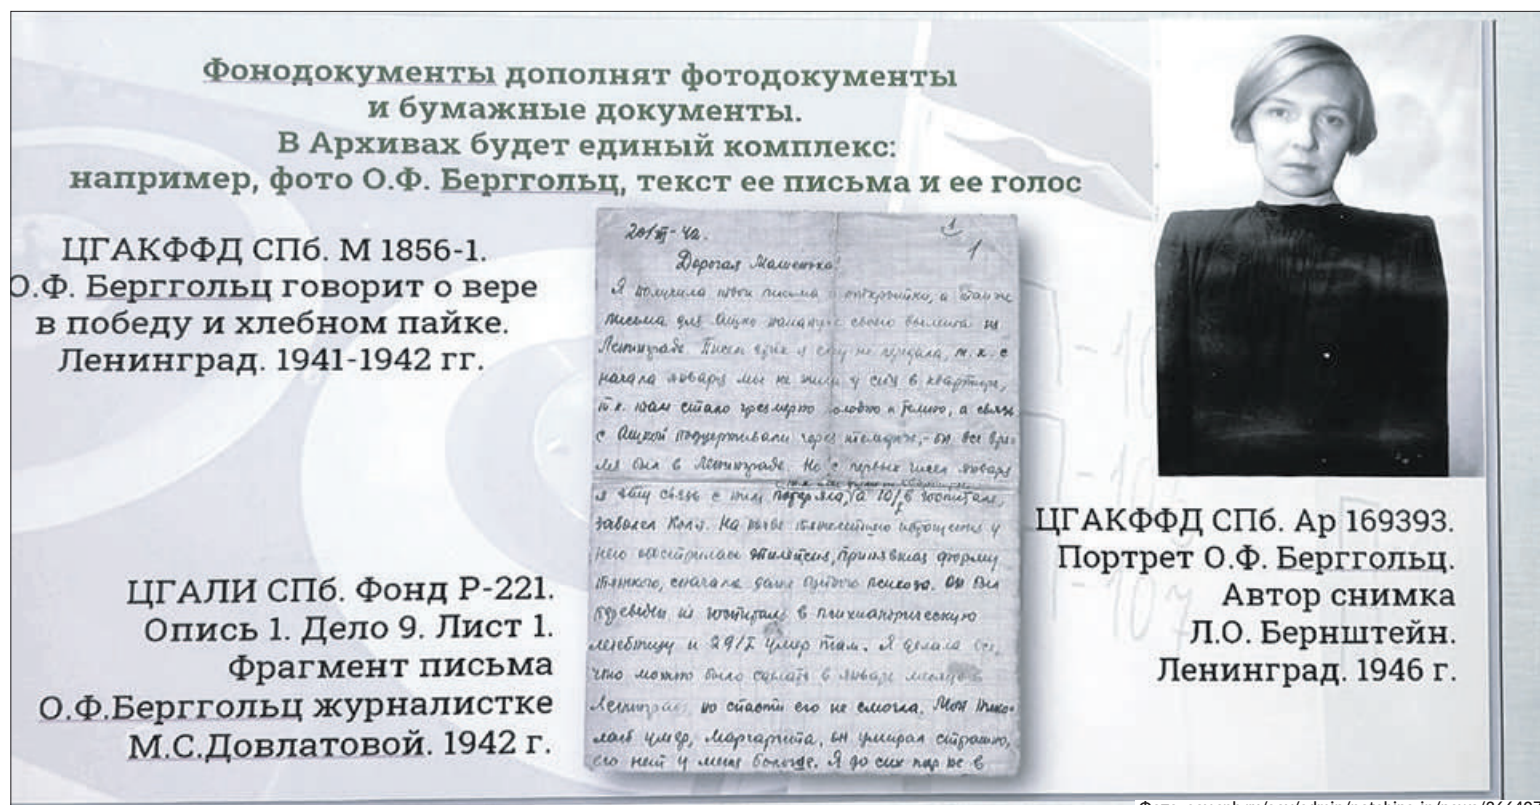 Фонодокументы дополнят фотодокументы
и бумажные документы.
В Архивах будет единый комплекс:
например, фото О.Ф. Берггольц, текст ее письма и ее голос
ЦГАКФФД СПб. М 1856-1.
О.Ф. Берггольц говорит о вере
в победу и хлебном пайке.
Ленинград. 1941-1942 гг.
ЦГАЛИ СПб. Фонд Р-221.
Опись 1. Дело 9. Лист 1.
Фрагмент письма
О.Ф.Берггольц журналистке
М.С.Довлатовой. 1942 г.
1
1
Дорогая
Я получила твои письма и открытки, а также
письма для накануне своего вылета из
Ленинграда. Писем я ему не передала, т.к. с
начала января мы не жили у себя в квартире,
т.к. там стало чрезмерно холодно и темно, а связь
с поддерживали через – он все вре-
мя был в Ленинграде. Но с первых чисел января
я эту связь с ним потеряла, а 10/I в госпитале,
заболел Коля. На почве тяжелейшего истощения у
него обострилась эпилепсия, принявшая форму
тяжкого, сначала даже буйного психоза. Он был
переведен из госпиталя в психиатрическую
лечебницу и 29/I умер там. Я делала все,
что можно было сделать в январе месяце в
Ленинграде, но спасти его не смогла. Мой Нико-
лай умер, Маргарита, он умирал страшно,
его нет у меня больше. Я до сих пор не в
ЦГАКФФД СПб. Ар 169393.
Портрет О.Ф. Берггольц.
Автор снимка
Л.О. Бернштейн.
Ленинград. 1946 г.